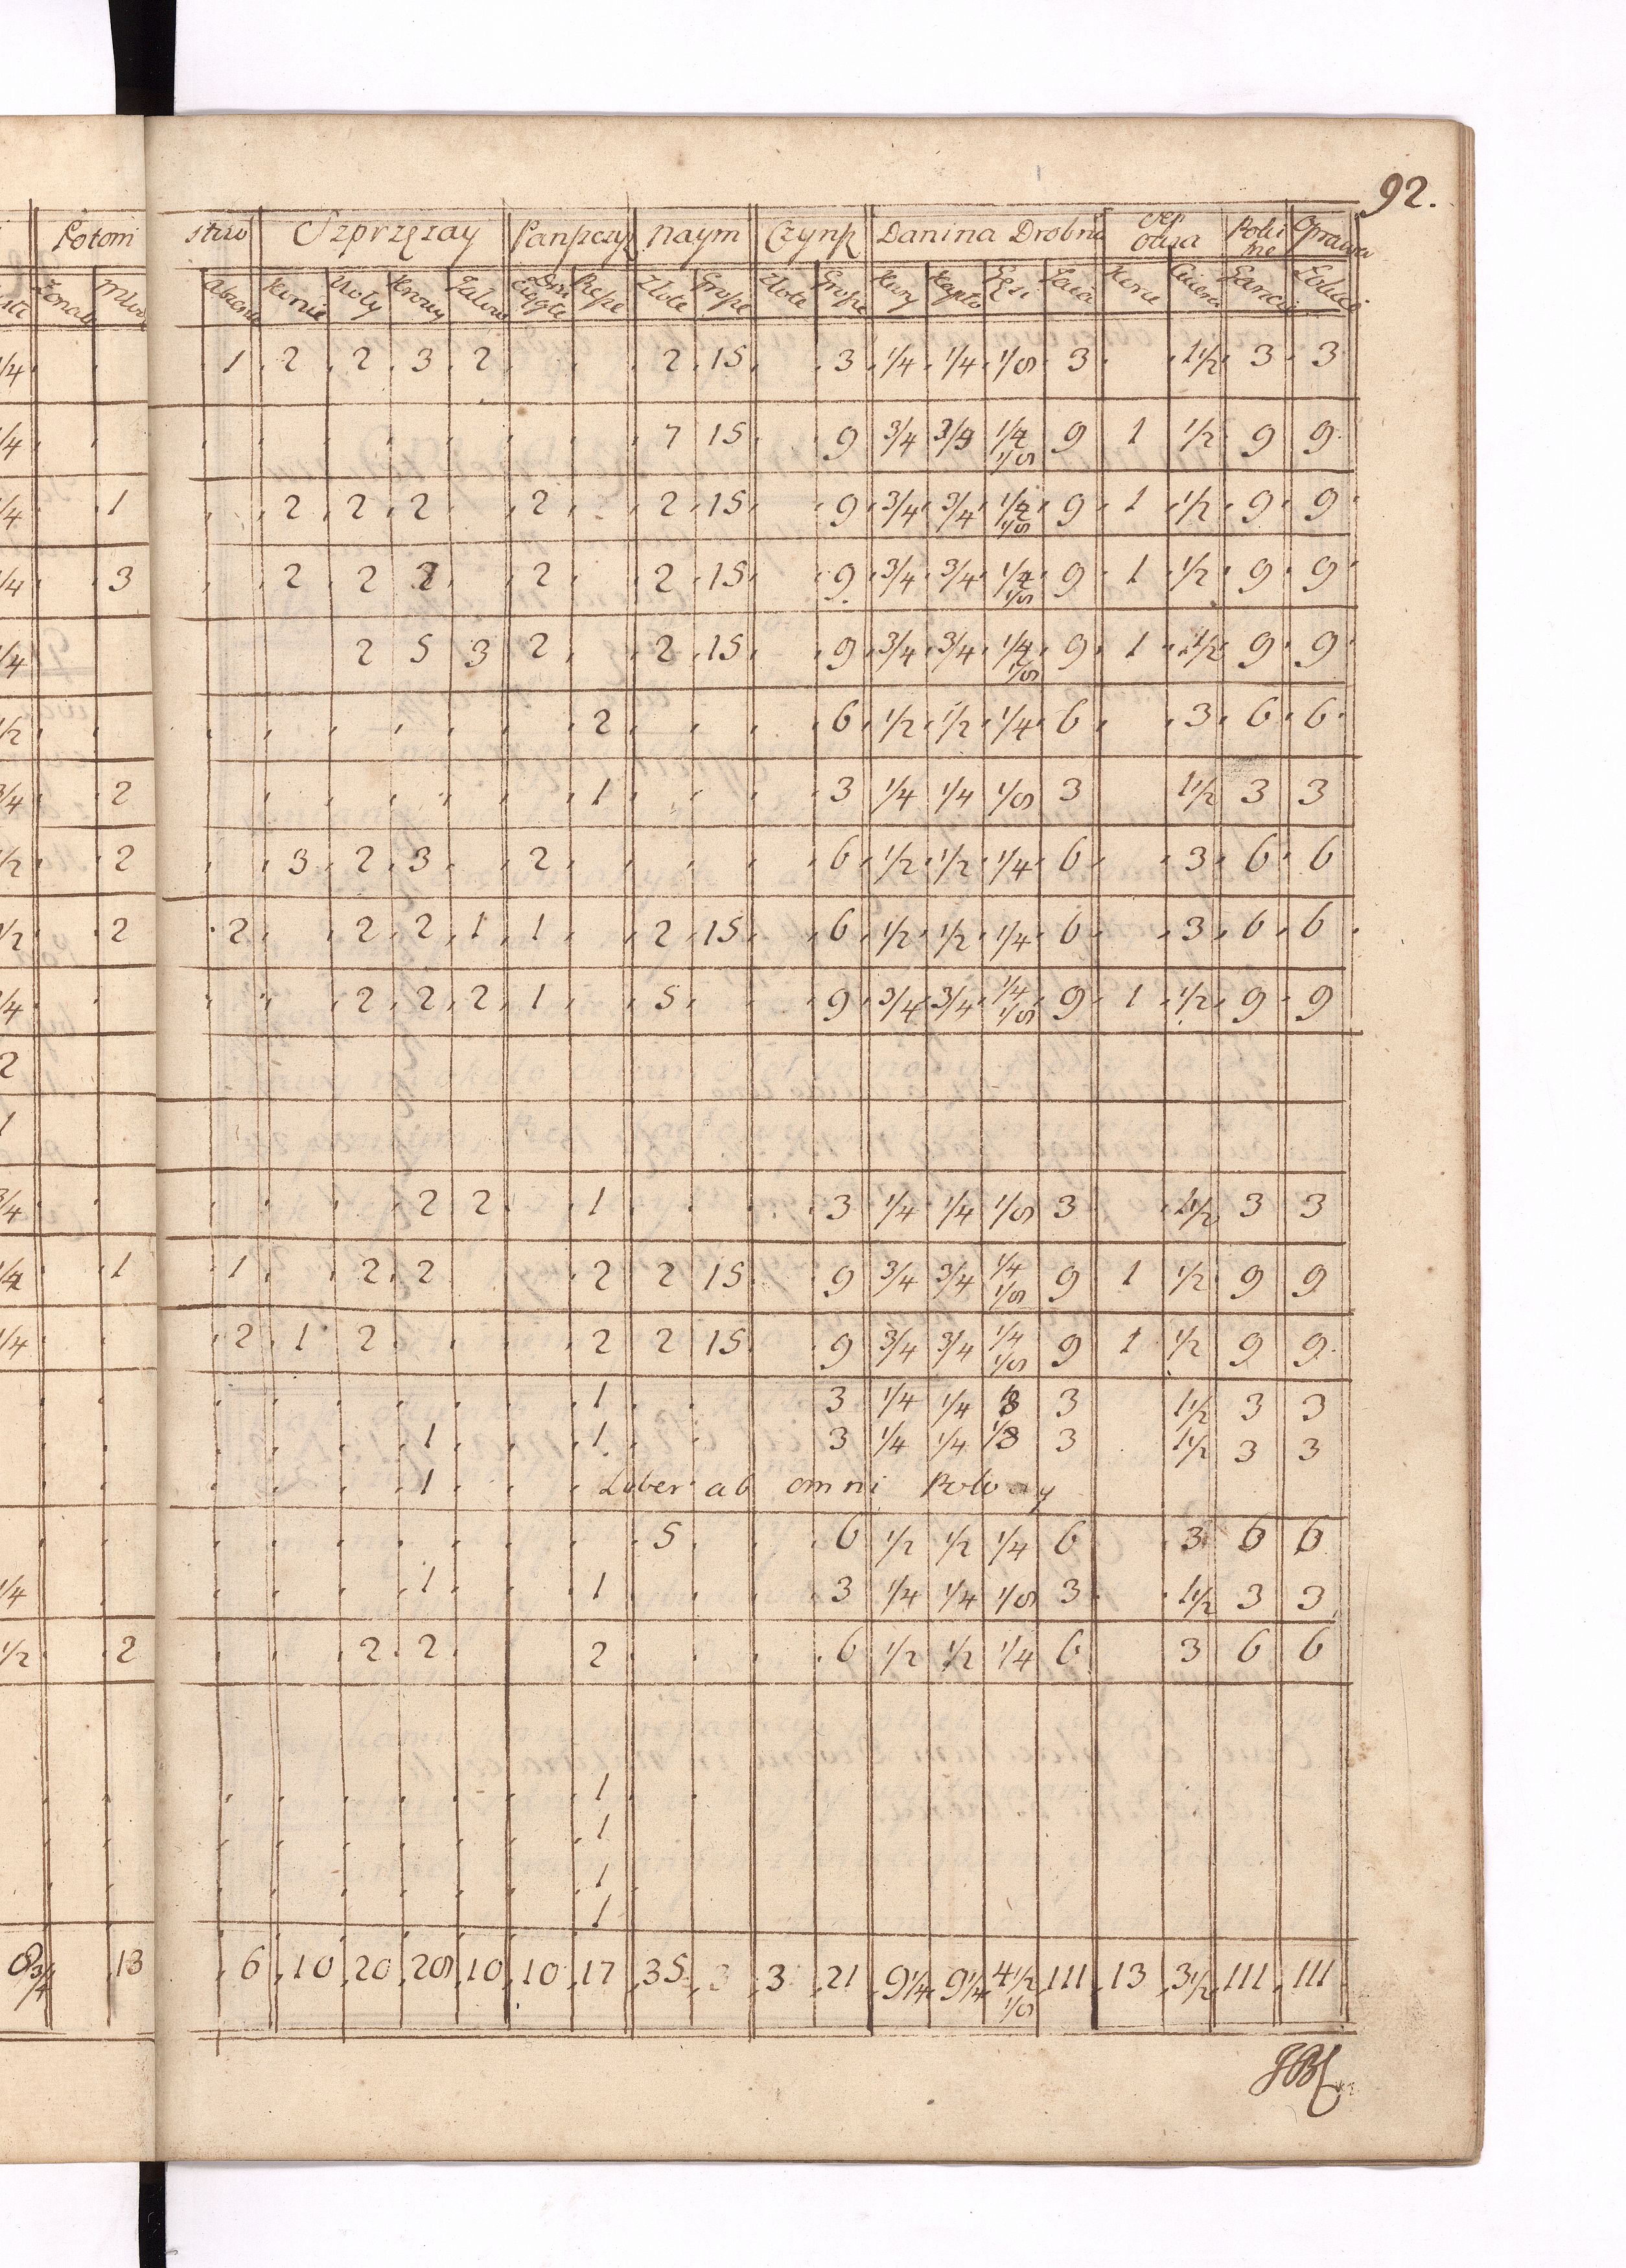 92.
Potom stwo Szprzęzay Panszczyz Naym Czynsz Danina Drobna Sep owsa Polu ne Oprawa
Zonate Młod Absent Konie Woły Krowy Jałow Dni Ciągłe Piesze Złote Grosze Złote Grosze Kury Kapło Gęsi Jaia Korce
1/4 1 2 2 3 2 2 15 3 1/4 1/4 1/8 3 1 1/2 3 3
1/4 7 15 9 3/4 3/4 1/4 1/8 9 1 1/2 9 9
1/4 1 2 2 2 2 2 15 9 3/4 3/4 1/4 1/8 9 1 1/2 9 9
1/4 3 2 2 2 2 2 15 9 3/4 3/4 1/4 1/8 9 1 1/2 9 9
1/4 2 5 3 2 2 15 9 3/4 3/4 1/4 1/8 9 1 1/2 9 9
1/2 2 6 1/2 1/2 1/4 6 3 6 6
3/4 2 1 3 1/4 1/4 1/8 3 1 1/2 3 3
1/2 2 3 2 3 2 6 1/2 1/2 1/4 6 3 6 6
1/2 2 2 2 2 1 1 2 15 6 1/2 1/2 1/4 6 3 6 6
1/4 2 2 2 1 5 9 3/4 3/4 1/4 1/8 9 1 1/2 9 9
2
1
3/4 2 2 1 3 1/4 1/4 1/8 3 1 1/2 3 3
1/4 1 1 2 2 2 2 15 9 3/4 3/4 1/4 1/8 9 1 1/2 9 9
1/4 2 1 2 2 2 15 9 3/4 3/4 1/4 1/8 9 1 1/2 9 9
1 3 1/4 1/4 8 3 1 1/2 3 3
1 1 3 1/4 1/4 1/8 3 1 1/2 3 3
1 Liber ab omni
5 6 1/2 1/2 1/4 6 3 6 6
1/4 1 1 3 1/4 1/4 1/8 3 1 1/2 3 3
1/2 2 2 2 2 6 1/2 1/2 1/4 6 3 6 6
1
1
1
1
8 3/4 13 6 10 20 28 10 10 17 35 3 3 21 9 1/4 9 1/4 4 1/2 1/8 111 13 3 1/2 111 111